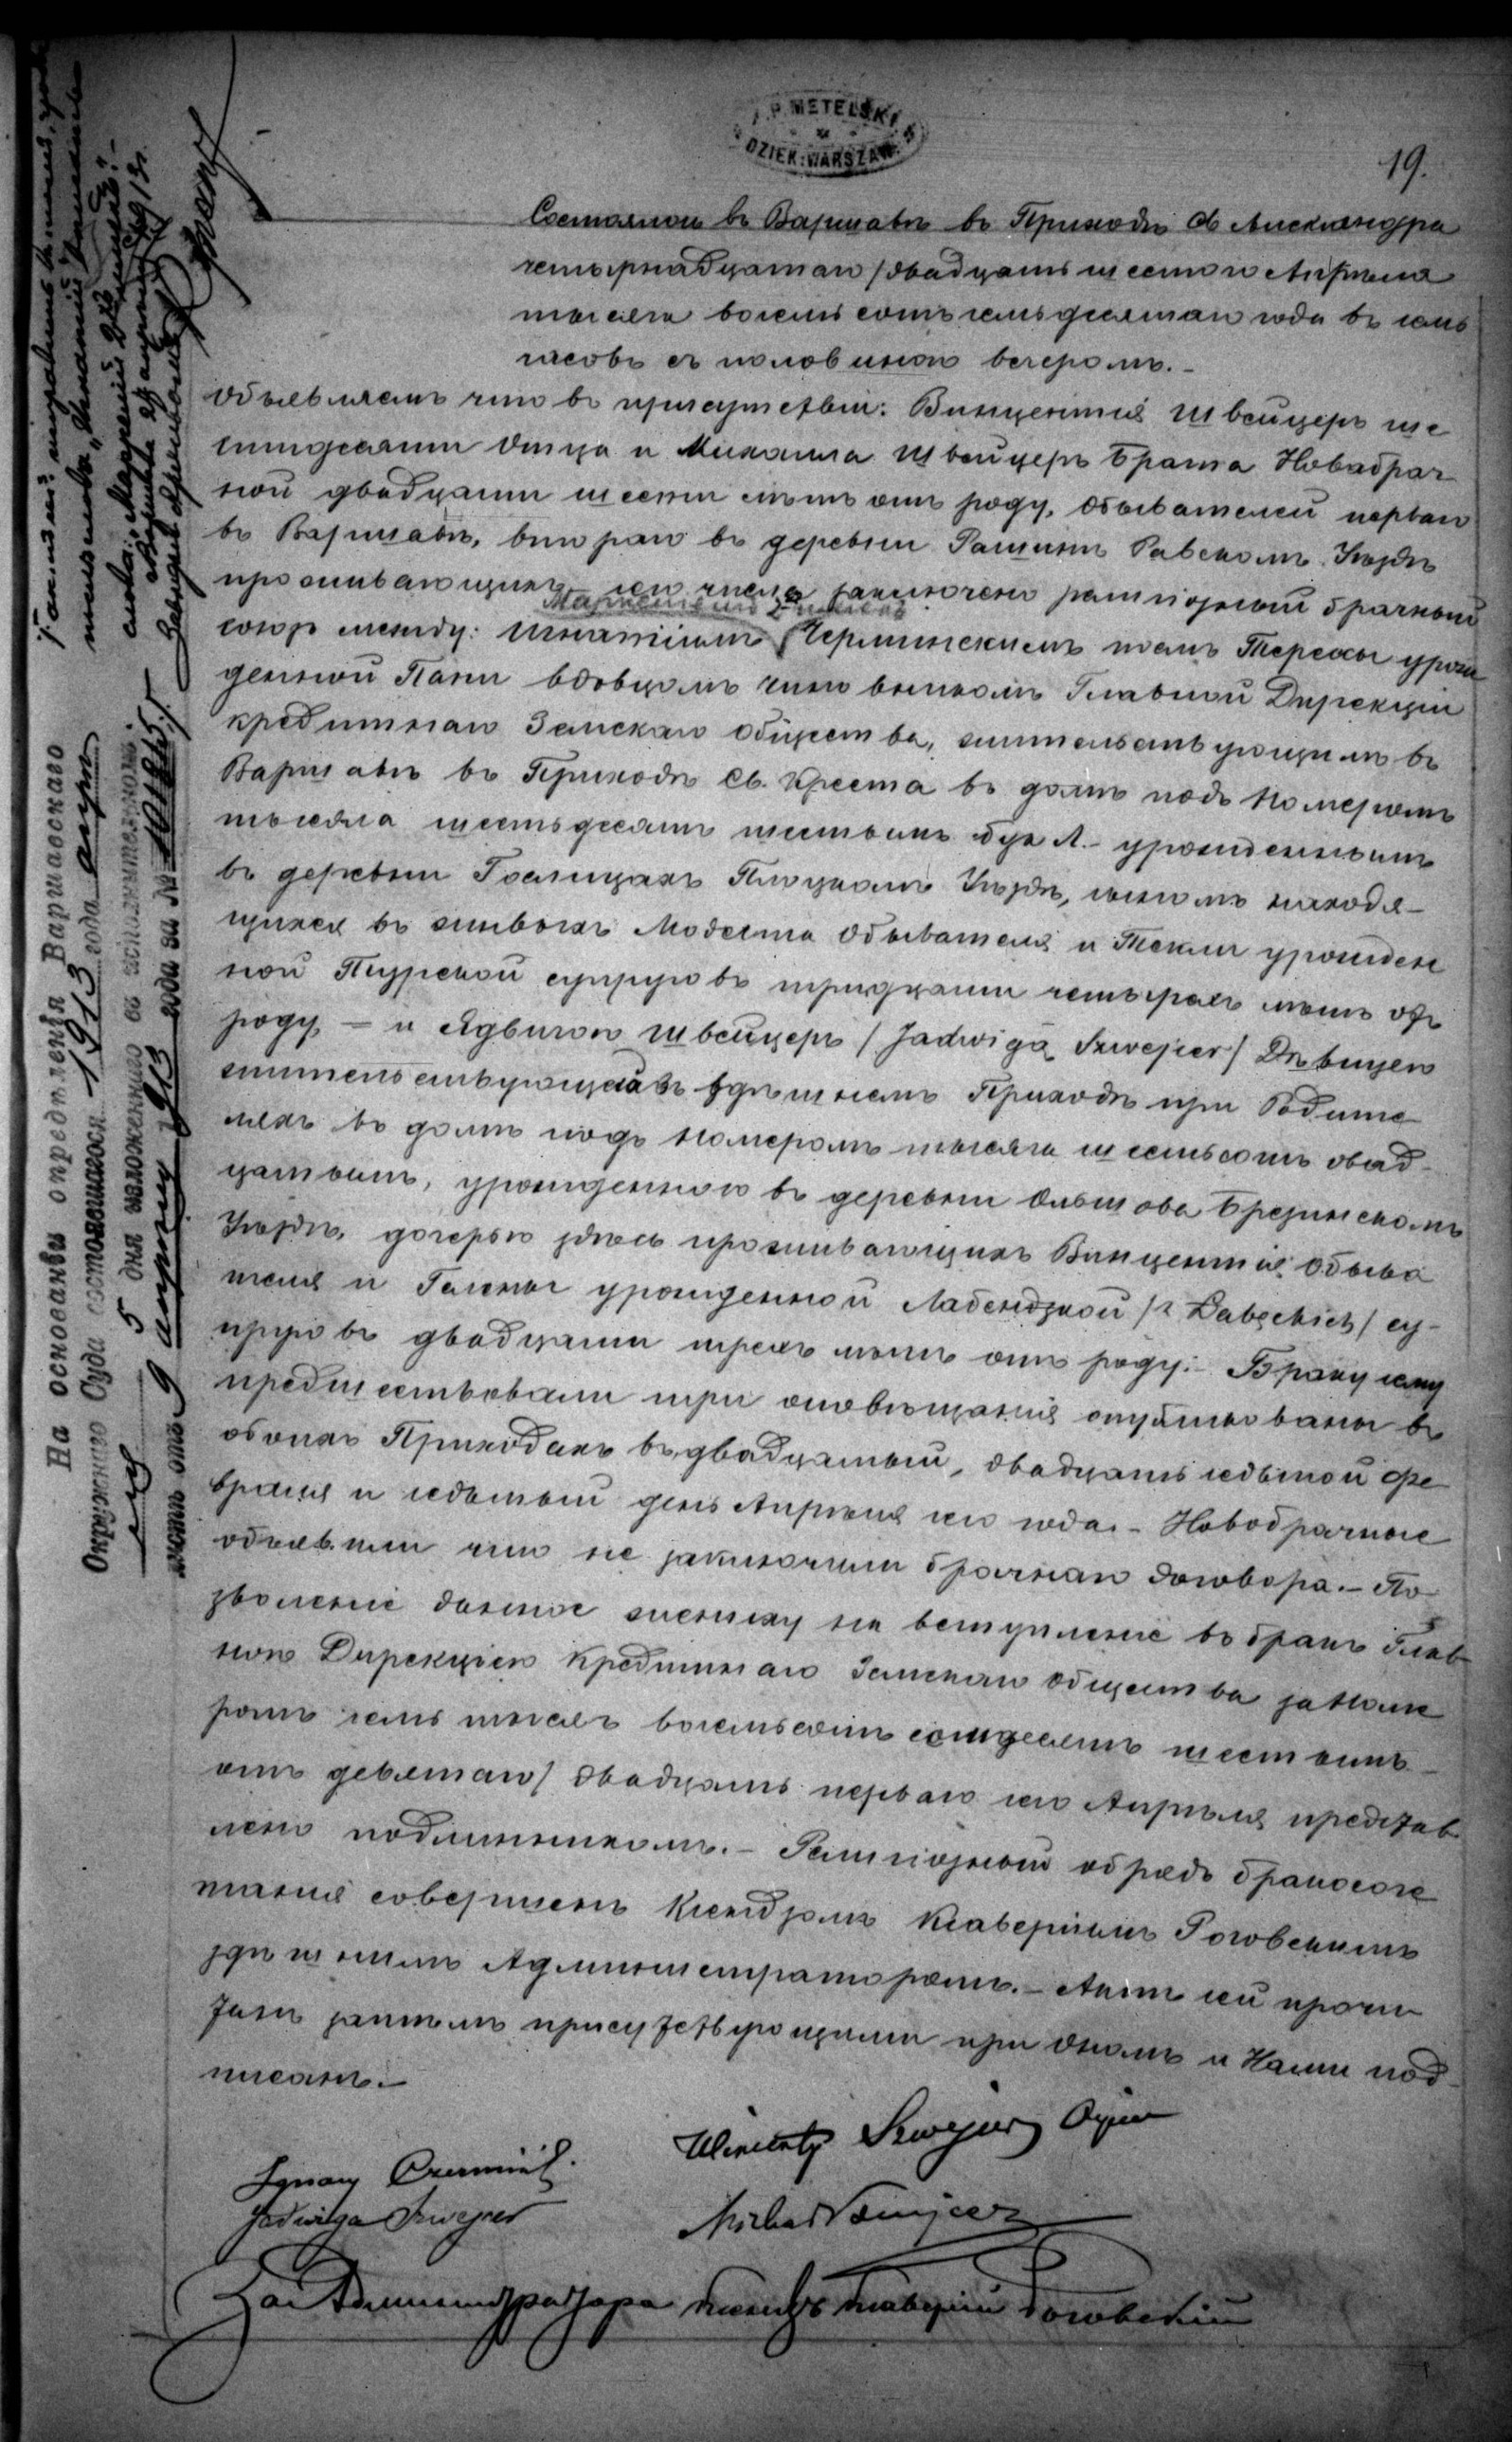 P. METELSKI
DZIEK: WARSZAW.
19.
Состоялось въ Варшавѣ въ Приходѣ Св Александра
четырнадцатаго / двадцать шестого Апрѣля
тысяча восемь сотъ семьдесятаго года въ семь
часовъ съ половиною вечеромъ.-
Объявляемъ что въ присутствіи: Винцентія Швейцеръ ше
стидесяти Отца и Михаила Швейцеръ Брата Новобрач
ной двадцати шести лѣтъ отъ роду, Обывателей перваго
въ Варшавѣ, втораго въ деревни Равскомъ Уѣздѣ
проживающихъ сего числа заключенъ религіозный брачный
союзъ между: Игнатіемъ Черминскимъ послѣ Терезы урож
денной Пани вдовцомъ чиновникомъ Главной Дирекціи
кредитнаго Земскаго общества, жительствующимъ въ
Варшавѣ въ Приходѣ Св. Креста въ домѣ подъ номеромъ
тысяча шестьдесятъ шестымъ бук Л.- урожденнымъ
въ деревни Гослицахъ Плоцкомъ Уѣздѣ, сыномъ находя-
щихся въ живыхъ Модеста Обывателя и Текли урожден
ной супруговъ тридцати четырехъ лѣтъ отъ
роду, - и Ядвигою Швейцеръ / Jadwigą Szwejcer / Дѣвицею
жительствующей въ здѣшнемъ Приходѣ при Родите
ляхъ въ домѣ подъ номеромъ тысяча шестьсотъ двад-
цатымъ, урожденною въ деревни Ольшова Брезинскомъ
Уѣздѣ, дочерью здѣсь проживающихъ Винцентія Обыва
теля и Гелены урожденной Лабендзкой / z Łabęckich / су-
пруговъ двадцати трехъ лѣтъ отъ роду:- Браку сему
предшествовали три оповѣщанія опубликованы въ
обоихъ Приходахъ въ двадцатый, двадцать седьмой Фе
враля и седьмый день Апрѣля сего года.- Новобрачные
объявили что не заключили брачнаго договора.- По
зволеніе данное жениху на вступленіе въ бракъ Глав
ною Дирекціею Кредитнаго Земскаго Общества за номе
ромъ семь тысячъ восемьсотъ семдесятъ шестымъ
отъ девятаго / двадцать перваго сего Апрѣля представ
лено подлинникомъ.- Религіозный обрядъ бракосоче
танія совершенъ Ксендзомъ Ксаверіимъ Роговскимъ
здѣшнимъ Администраторомъ.- Актъ сей прочи
танъ затѣмъ присутствующими при ономъ и Нами под-
писанъ.-
Wincenty Szwejcer Ojciec
Ignacy Czermiński.
Jadwiga Szwejcer
Michał Szwejcer
За Администратора Ксендзъ Ксаверій Роговскій
На основаніи опредѣленія Варшавскаго
Окружнаго Суда состоявшагося 1913 года апр.
5 дня изложеннаго въ исполнительномъ
листѣ отъ 9 апрѣля 1913 года за № 10125